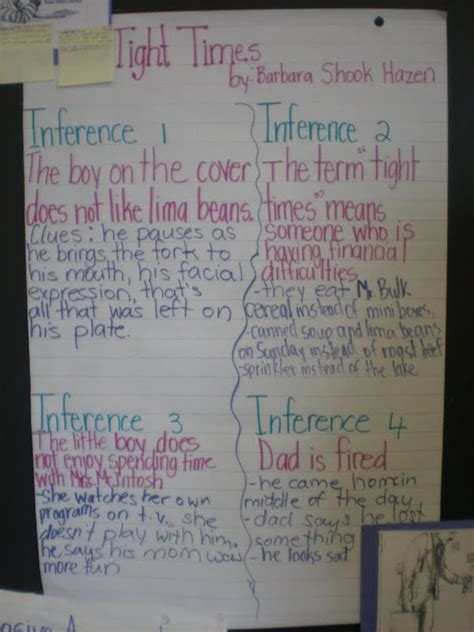 Tight Times
by: Barbara Shook Hazen
Inference 1
The boy on the cover
does not like lima beans.
Clues: he pauses as
he brings the fork to
his mouth, his facial
expression, that's
all that was left on
his plate.
Inference 2
The term "tight
times" means
someone who is
having financial
difficulties
-they eat Mr. Bulk
cereal instead of mini boxes,
-canned soup and lima beans
on Sunday instead of roast beef
-sprinkler instead of the lake
Inference 3
The little boy does
not enjoy spending time
with Mrs. McIntosh
-she watches her own
programs on t.v., she
doesn't play with him,
he says his mom was
more fun
Inference 4
Dad is fired
-he came home in
middle of the day
-dad says he lost
something
-he looks sad